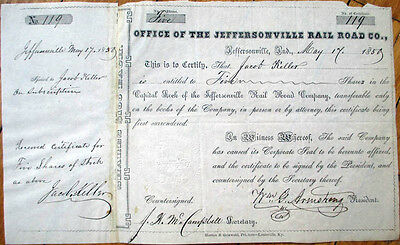 No 119
Jeffersonville May 17. 1853
Issued to Jacob Keller
on Subscription
Received Certificate for
Five Shares of Stock
as above
Jacob Keller
No. of Shares.
Five
No. of Certificate.
119
OFFICE OF THE JEFFERSONVILLE RAIL ROAD CO.,
Jeffersonville, Ind., May 17. 1853
This is to Certify, That Jacob Keller
is entitled to Five Shares in the
Capital Stock of the Jeffersonville Rail Road Company, transferable only
on the books of the Company, in person or by attorney, this certificate being
first surrendered.
In Witness Whereof, The said Company
has caused its Corporate Seal to be hereunto affixed,
and the certificate to be signed by the President, and
countersigned by the Secretary thereof.
Countersigned.
Wm G. Armstrong President.
J. H. McCampbell Secretary.
Griswold, Printers—Louisville, Ky.